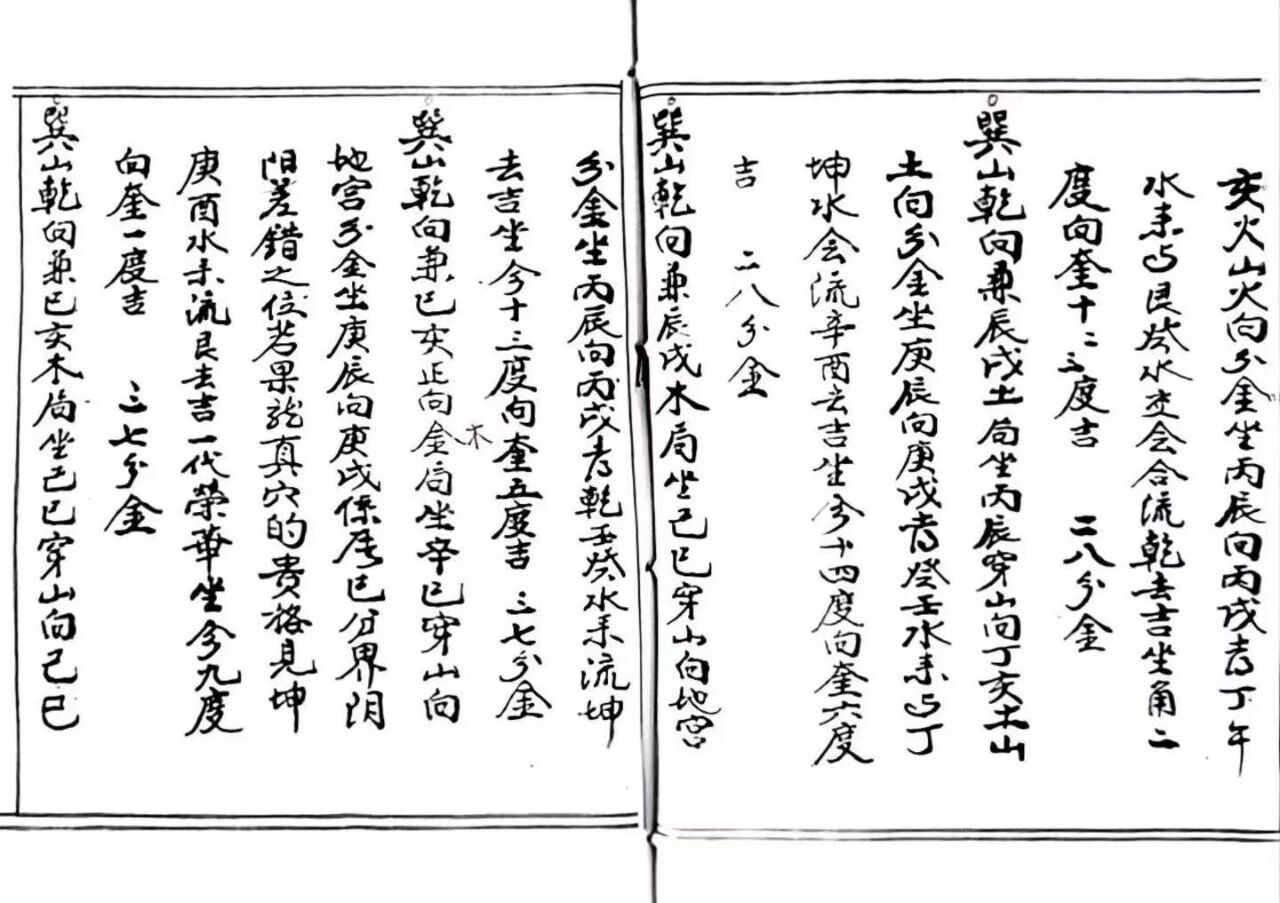 亥火山火向分金坐丙辰向丙戌者丁午
水来与艮癸水交会合流乾去吉坐角二
度向奎十二三度吉　二八分金
巽山乾向兼辰戌土局坐丙辰穿山向丁亥土山
土向分金坐庚辰向庚戌者癸壬水来与丁
坤水会流辛酉去吉坐兮十四度向奎六度
吉　二八分金
巽山乾向兼辰戌木局坐己巳穿山向地宫
分金坐丙辰向丙戌者乾壬癸水来流坤
去吉坐兮十三度向奎五度吉　三七分金
巽山乾向兼巳亥正向金局坐辛巳穿山向
木
地宫分金坐庚辰向庚戌係辰巳分界阴
阳差错之位若果龙真穴的贵格见坤
庚酉水来流艮去吉一代荣華坐兮九度
向奎一度吉　三七分金
巽山乾向兼巳亥木局坐己巳穿山向己巳